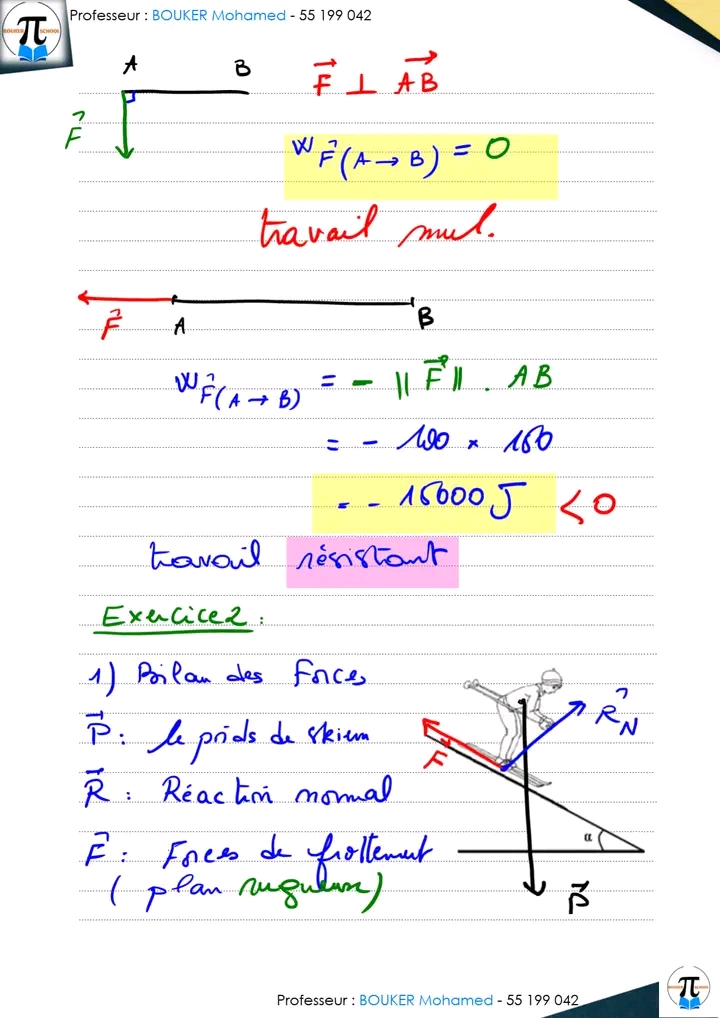 Professeur : BOUKER Mohamed - 55 199 042
π
BOUKER SCHOOL
A B
F⃗ ⊥ AB⃗
F⃗
W F⃗ (A → B) = 0
travail nul.
F⃗ A B
W F⃗ (A → B) = - || F⃗ || . AB
= - 100 × 150
= - 15000 J < 0
travail résistant
Exercice 2 :
1) Bilan des Forces
P⃗ : le poids de skieur
R⃗ : Réaction normal
F⃗ : Forces de frottement
( plan rugueuse)
R⃗N
F
α
P⃗
Professeur : BOUKER Mohamed - 55 199 042
π
BOUKER SCHOOL